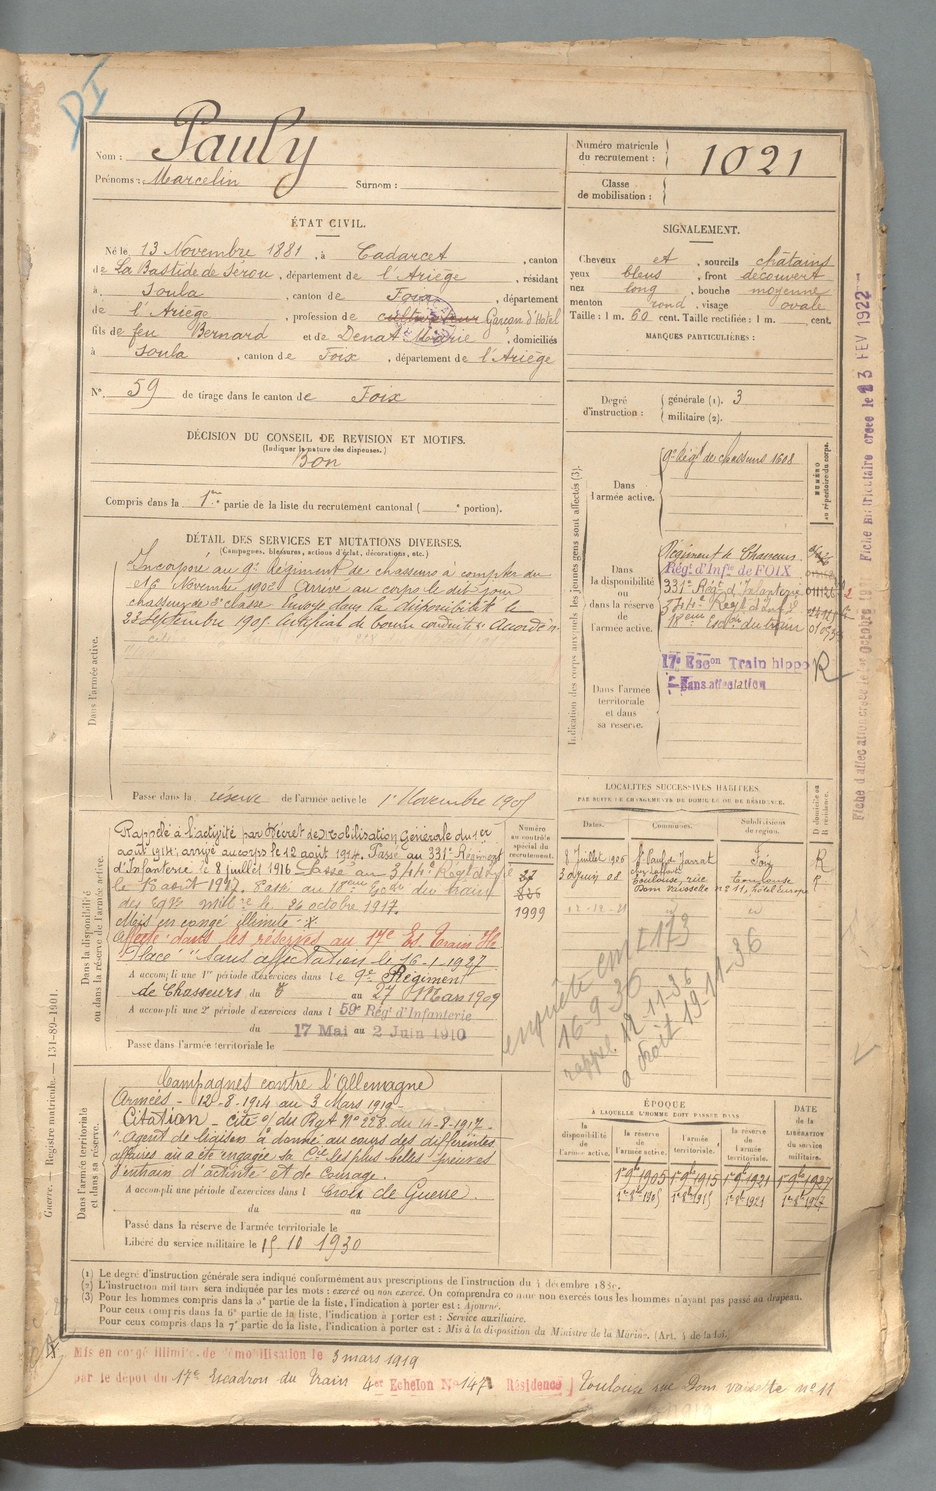 Nom : Pauly
Prénoms : Marcelin Surnom :
Numéro matricule du recrutement : 1021
Classe de mobilisation :
ÉTAT CIVIL.
Né le 13 Novembre 1881, à Cadarcet, canton
de La Bastide de Sérou, département de l'Ariège, résidant
à Soula, canton de Foix, département
de l'Ariège, profession de cultivateur Garçon d'Hôtel
fils de feu Bernard et de Denat Marie, domiciliés
à Soula, canton de Foix, département de l'Ariège
N° 59 de tirage dans le canton de Foix
SIGNALEMENT.
Cheveux et, sourcils châtains
yeux bleus, front découvert
nez long, bouche moyenne
menton rond, visage ovale
Taille : 1 m. 60 cent. Taille rectifiée : 1 m. cent.
MARQUES PARTICULIÈRES :
Degré d'instruction : générale (1). 3
militaire (2).
DÉCISION DU CONSEIL DE REVISION ET MOTIFS.
(Indiquer la nature des dispenses.)
Bon
Compris dans la 1re partie de la liste du recrutement cantonal ( e portion).
DÉTAIL DES SERVICES ET MUTATIONS DIVERSES.
(Campagnes, blessures, actions d'éclat, décorations, etc.)
Dans l'armée active.
Incorporé au 9e Régiment de chasseurs à compter du
16 Novembre 1902. Arrivé au corps le dit jour
chasseur de 2e classe. Envoyé dans la disponibilité le
23 Septembre 1905. Certificat de bonne conduite : Accordé
Passé dans la réserve de l'armée active le 1er Novembre 1905
Indication des corps auxquels les jeunes gens sont affectés (3).
NUMÉRO au répertoire du corps.
Dans l'armée active.
9e Régt de chasseurs 1608
Dans la disponibilité ou dans la réserve de l'armée active.
Régiment de Chasseurs
Rég. d'Inf. de FOIX
331e Régt d'Infanterie
344e Régt d'Inf.
18eme Escon du train
Dans l'armée territoriale et dans sa réserve.
17e Escon Train hippo R
Sans affectation
Dans la disponibilité ou dans la réserve de l'armée active.
Rappelé à l'activité par Décret de Mobilisation Générale du 1er
août 1914, arrivé au corps le 12 août 1914. Passé au 331e Régiment
d'Infanterie le 8 juillet 1916. Passé au 344e Régt d'Infie
le 18 août 1917. Passé au 18eme Escon du train
des Eqges milres le 24 octobre 1917.
Mis en congé illimité X
Affecté dans les réserves au 17e Es. Train He
"Placé" "sans affectation le 16-1-1927
A accompli une 1re période d'exercices dans l e 9e Régiment
de Chasseurs du 8 au 27 Mars 1909
A accompli une 2e période d'exercices dans l 59e Rég' d'Infanterie
du 17 Mai au 2 Juin 1910
Passé dans l'armée territoriale le
Numéro au contrôle spécial du recrutement.
1999
LOCALITÉS SUCCESSIVES HABITÉES
PAR SUITE DE CHANGEMENTS DE DOMICILE OU DE RÉSIDENCE.
Dates. Communes. Subdivisions de région. Domicile ou Résidence.
8 Juillet 1906 St Paul de Jarrat Foix R
3 Juin 08 Toulouse, rue Toulouse R
Dom Vaissette n° 11, hôtel Europe
12-12-21
enquête em I 173
16-9-36
rappel 12-11-36
a droit 19-11-36
Dans l'armée territoriale et dans sa réserve.
Campagnes contre l'Allemagne
Armées - 12-8-1914 au 3 Mars 1919 -
Citation - cité o/ du Rgt N° 228 du 14-8-1917 -
"Agent de liaison à donné au cours des différentes
affaires où a été engagée sa Cie les plus belles preuves
d'entrain d'activité et de courage.
A accompli une période d'exercices dans l Croix de Guerre
du au
Passé dans la réserve de l'armée territoriale le
Libéré du service militaire le 15 10 1930
ÉPOQUE
A LAQUELLE L'HOMME DOIT PASSER DANS
la disponibilité de l'armée active. la réserve de l'armée active. l'armée territoriale. la réserve de l'armée territoriale.
DATE de la LIBÉRATION du service militaire.
1er 9bre 1905 1er 9bre 1915 1er 9bre 1921 1er 9bre 1927
1er 8bre 1905 1er 8bre 1915 1er 8bre 1921 1er 8bre 1927
(1) Le degré d'instruction générale sera indiqué conformément aux prescriptions de l'instruction du 4 décembre 1889.
(2) L'instruction militaire sera indiquée par les mots : exercé ou non exercé. On comprendra comme non exercés tous les hommes n'ayant pas passé au drapeau.
(3) Pour les hommes compris dans la 5e partie de la liste, l'indication à porter est : Ajourné.
Pour ceux compris dans la 6e partie de la liste, l'indication à porter est : Service auxiliaire.
Pour ceux compris dans la 7e partie de la liste, l'indication à porter est : Mis à la disposition du Ministre de la Marine. (Art. 4 de la loi.)
Mis en congé illimité de démobilisation le 3 mars 1919
par le dépôt du 17e Escadron du Train 4er Echelon N° 147 Résidence ] Toulouse rue Dom Vaissette n° 11
Guerre. — Registre matricule. — 131-89-1901.
Fiche matriculaire créée le 23 FEV 1922